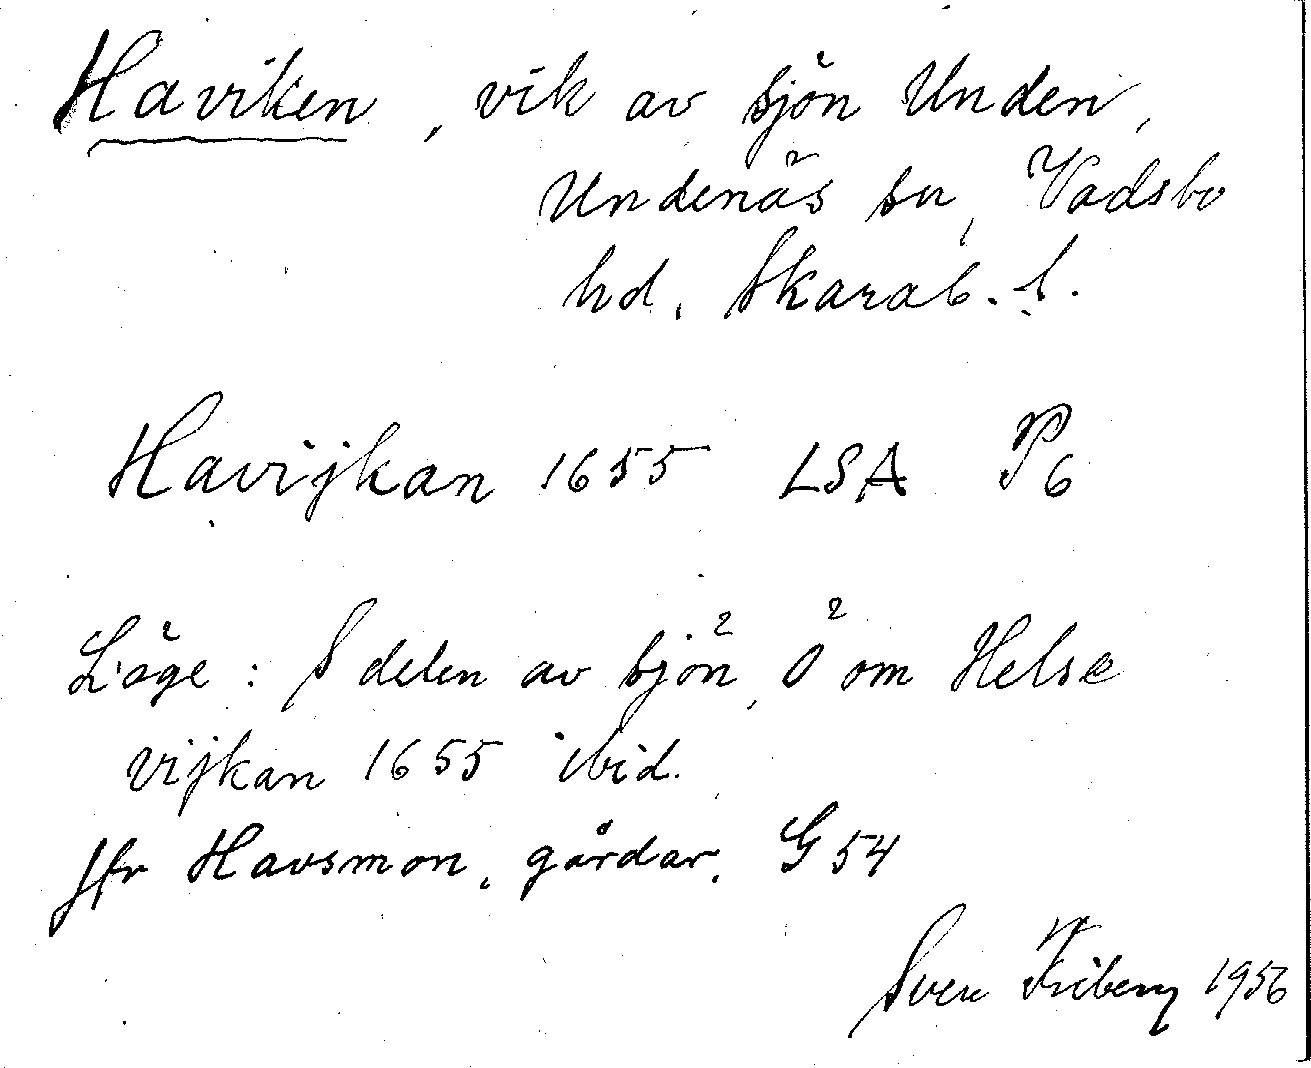 Haviken, vik av sjön Unden,
Undenäs sn, Vadsbo
hd, Skarab. l.
Havijkan 1655 LSA P6
Läge: S delen av sjön, Ö om Helse
vijkan 1655 ibid.
Jfr Havsmon, gårdar, G54
Sven Friberg 1956